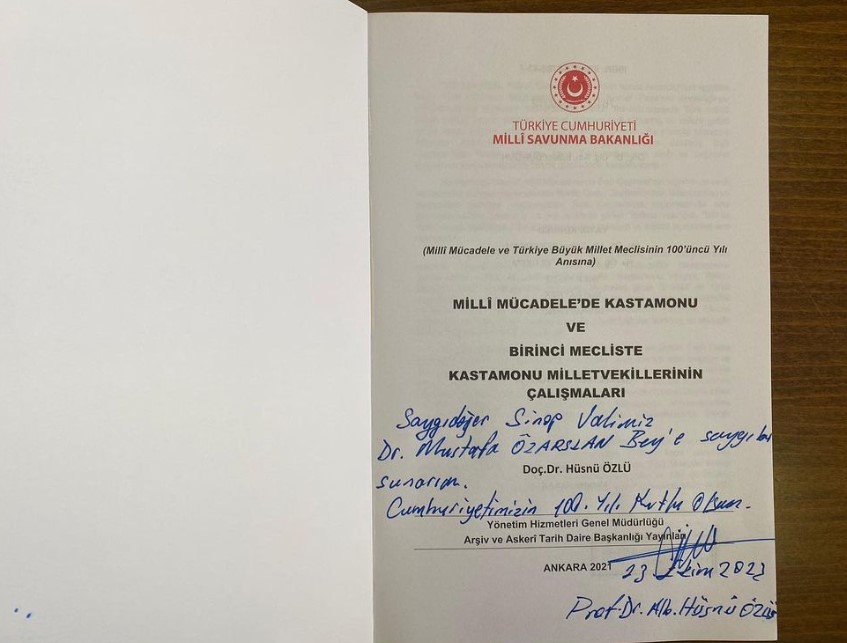 TÜRKİYE CUMHURİYETİ
MİLLÎ SAVUNMA BAKANLIĞI
(Millî Mücadele ve Türkiye Büyük Millet Meclisinin 100'üncü Yılı
Anısına)
MİLLÎ MÜCADELE'DE KASTAMONU
VE
BİRİNCİ MECLİSTE
KASTAMONU MİLLETVEKİLLERİNİN
ÇALIŞMALARI
Saygıdeğer Sinop Valimiz
Dr. Mustafa ÖZARSLAN Bey'e saygılar
Doç.Dr. Hüsnü ÖZLÜ
sunarım.
Cumhuriyetimizin 100. Yılı Kutlu Olsun.
Yönetim Hizmetleri Genel Müdürlüğü
Arşiv ve Askerî Tarih Daire Başkanlığı Yayınları
ANKARA 2021
23 Ekim 2023
Prof. Dr. Alb. Hüsnü ÖZLÜ